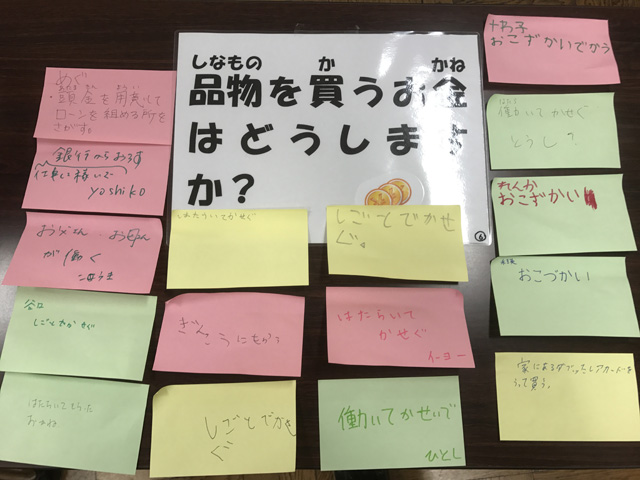 しなもの か かね
品物を買うお金
はどうします
か?
6
めぐ
・頭金を用意して
ローンを組める所を
さがす。
銀行からおろす
仕事に稼いで
yoshiko
お父さん お母さん
が働く
谷口
しごとでかせぐ
はたらいてもらった
おかね
はたらいてかせぐ
しごとでかせ
ぐ。
ぎん
こうにもらう
はたらいて
かせぐ
イーヨー
しごとでかせ
ぐ
働いてかせいで
ひとし
おこずかいでかう
働いてかせぐ
とうし?
れんか
おこずかい
おこづかい
家にあるダブったレアカードを
うって買う。